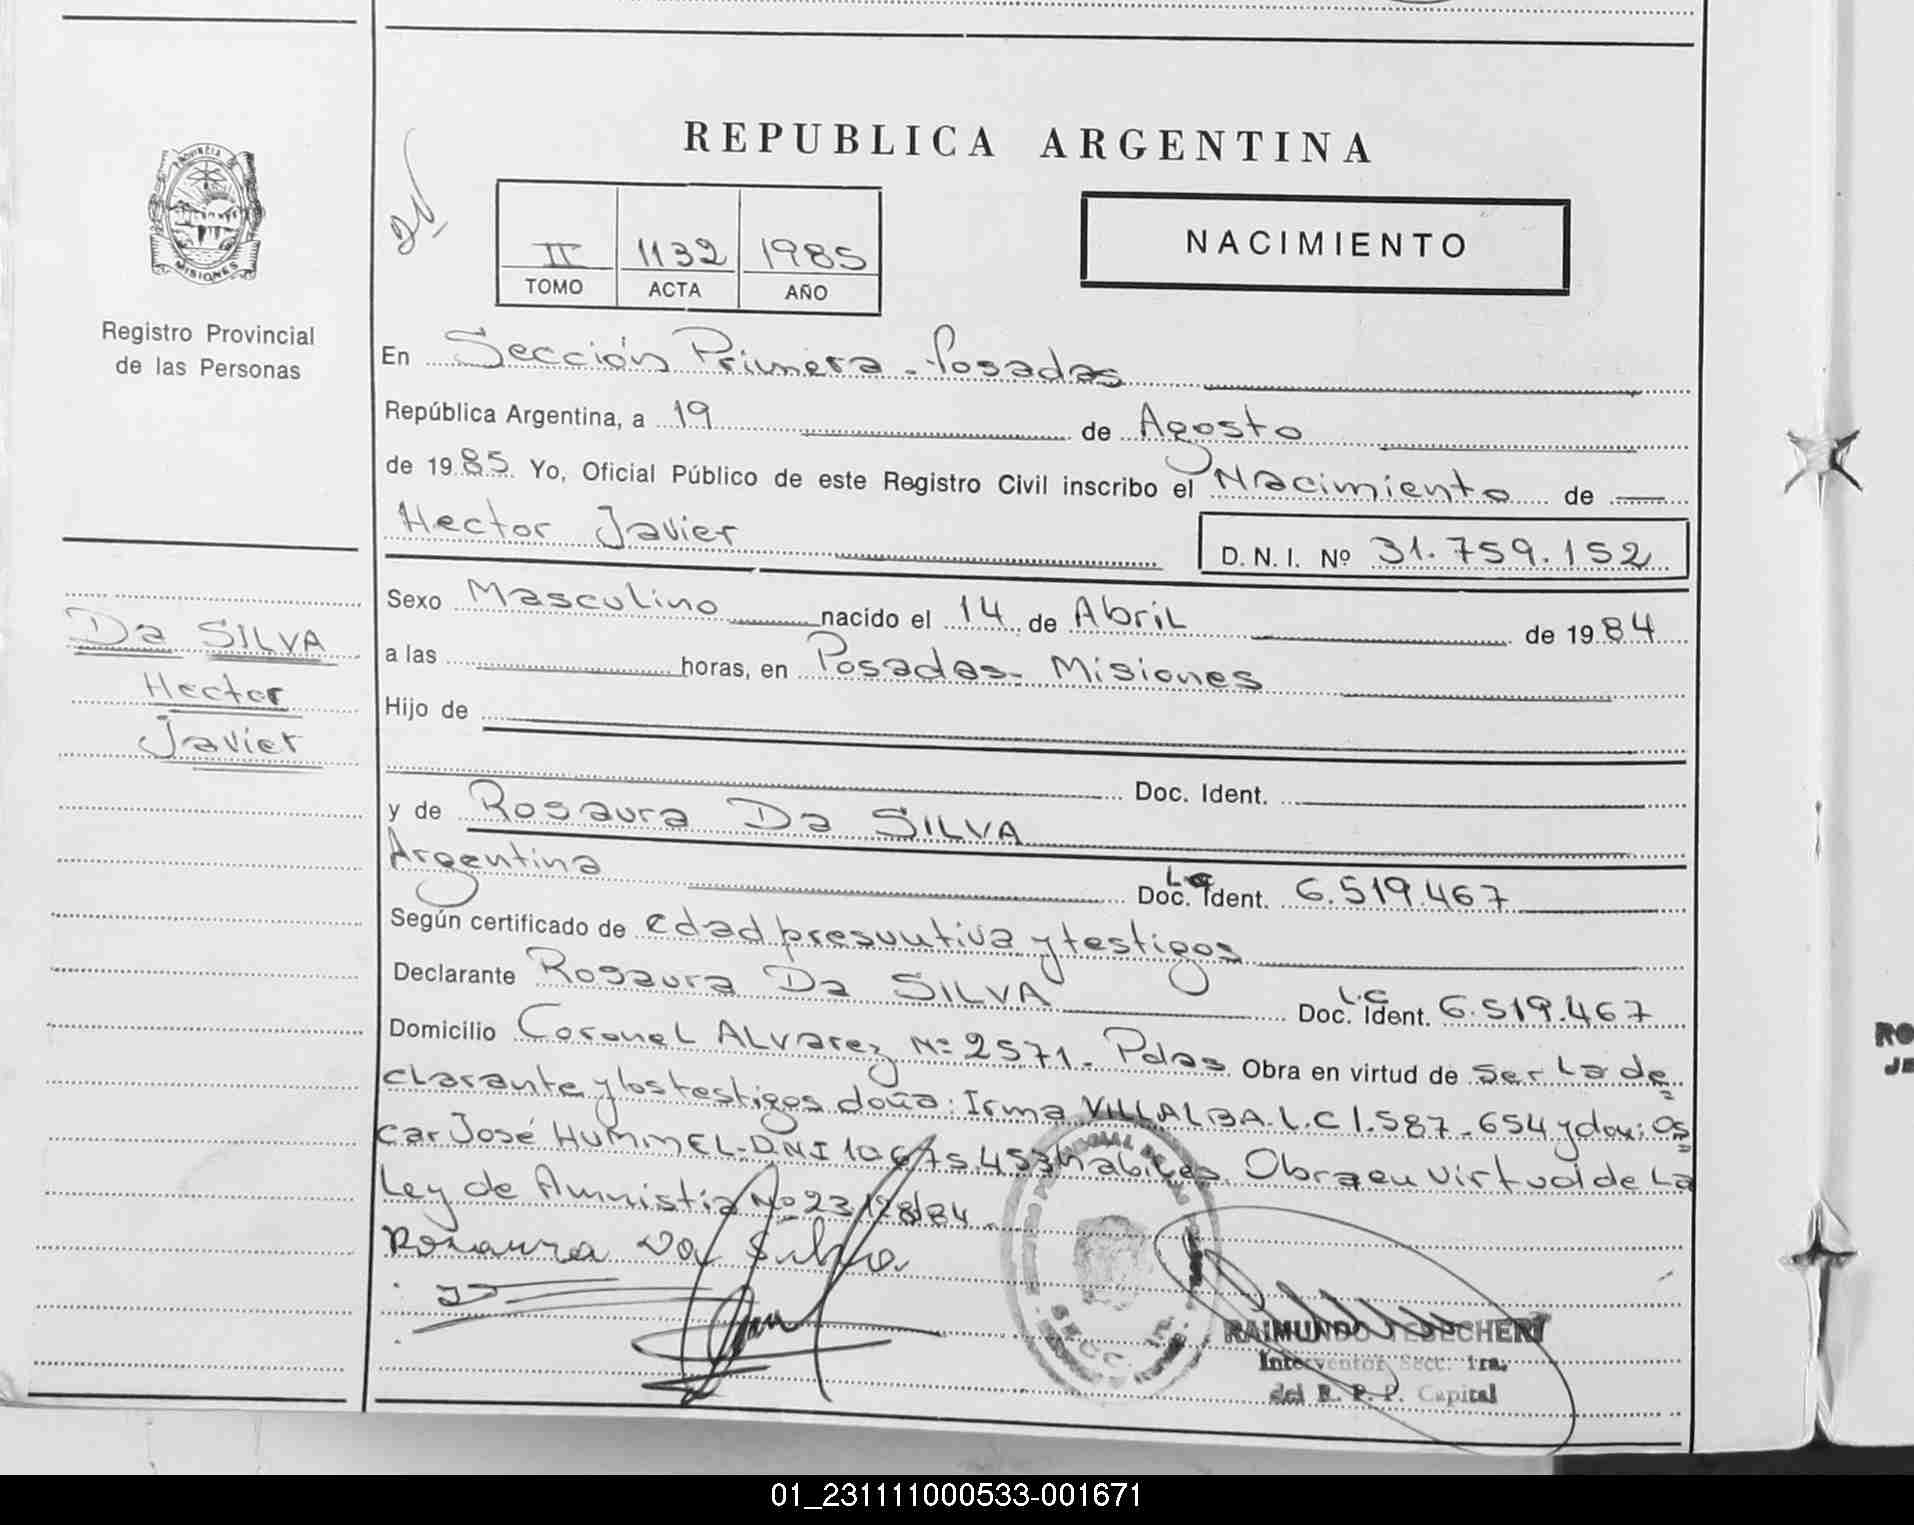 REPUBLICA ARGENTINA
PROVINCIA DE
MISIONES
Registro Provincial
de las Personas
II 1132 1985
TOMO ACTA AÑO
NACIMIENTO
En Sección Primera - Posadas
República Argentina, a 19 de Agosto
de 1985. Yo, Oficial Público de este Registro Civil inscribo el Nacimiento de
Hector Javier D. N. I. Nº 31.759.152
Sexo Masculino nacido el 14 de Abril de 1984
a las horas, en Posadas - Misiones
Hijo de
Doc. Ident.
y de Rosaura Da SILVA
Argentina Doc. Ident. L.C 6.519.467
Según certificado de edad presuntiva y testigos
Declarante Rosaura Da SILVA Doc. Ident. L.C 6.519.467
Domicilio Coronel ALvarez Nº 2571 - Pdas Obra en virtud de ser La de=
clarante y los testigos doña: Irma VILLALBA - L.C 1.587.654 y don: Os=
car José HUMMEL - DNI 10.675.453 habiles. Obra en virtud de La
Ley de Amnistia Nº 23128/84.
Rosaura Da Silva
RAIMUNDO TESECHERI
Interventor Secc. 1ra.
del R. P. P. Capital
Da SILVA
Hector
Javier
01_231111000533-001671